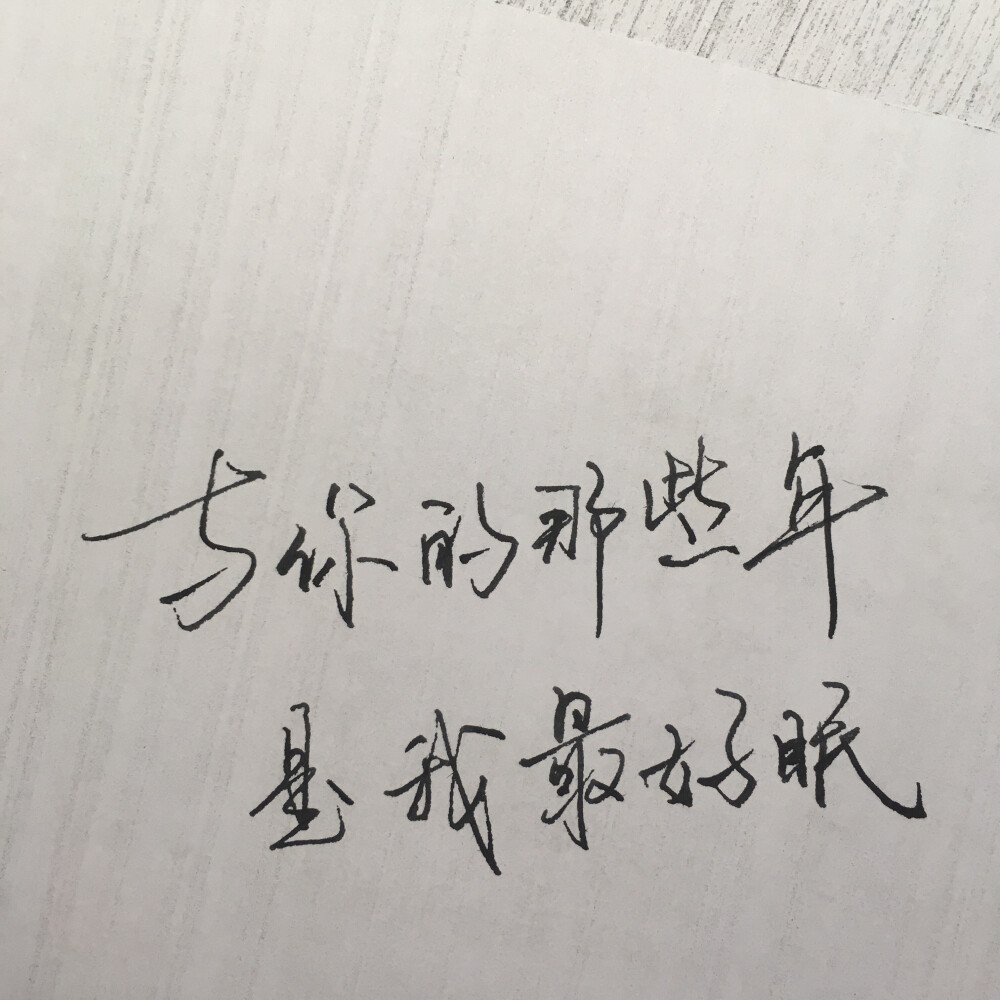 与你的那些年
是我最好眠